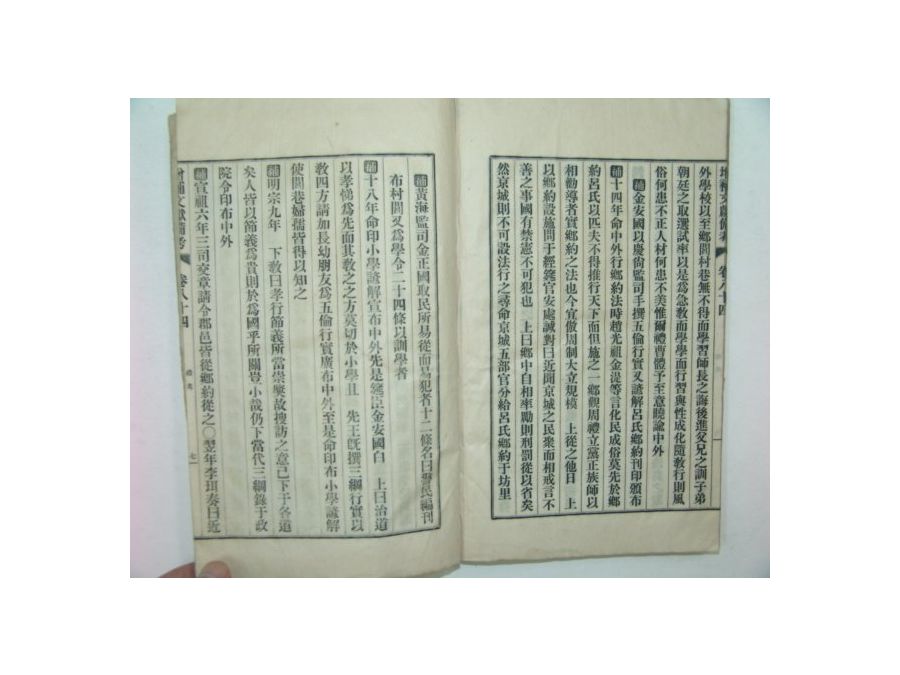 增補文獻備考 卷八十四
外學校以至鄕閭村巷無不得而學習師長之誨後進父兄之訓子弟
朝廷之取選試率以是爲急敎而學學而行習與性成化隨敎行則風
俗何患不正人材何患不美惟爾禮曹體予至意曉諭中外
補金安國以慶尙監司手撰五倫行實又諺解呂氏鄕約刊印頒布
補十四年命中外行鄕約法時趙光祖金湜等言化民成俗莫先於鄕
約呂氏以匹夫不得推行天下而但施之一鄕觀周禮立黨正族師以
相勸導者實鄕約之法也今宜倣周制大立規模 上從之他日 上
以鄕約設施問于經筵官安處誠對曰近聞京城之民衆而相戒言不
善之事國有禁憲不可犯也 上曰鄕中自相率勵則刑罰從以省矣
然京城則不可設法行之尋命京城五部官分給呂氏鄕約于坊里
補黃海監司金正國取民所易從而易犯者十二條名曰警民編刊
布村閭又爲學令二十四條以訓學者
補十八年命印小學諺解宣布中外先是筵臣金安國白 上曰治道
以孝悌爲先而其敎之之方莫切於小學且 先王旣撰三綱行實以
敎四方請加長幼朋友爲五倫行實廣布中外至是命印布小學諺解
使閭巷婦孺皆得以知之
補明宗九年 下敎曰孝行節義所當崇奬故搜訪之意已下于各道
矣人皆以節義爲貴則於爲國乎所關豈小哉仍下當代三綱錄于政
院令印布中外
補宣祖六年三司交章請令郡邑皆從鄕約從之○翌年李珥奏曰近
增補文獻備考 卷八十四 七